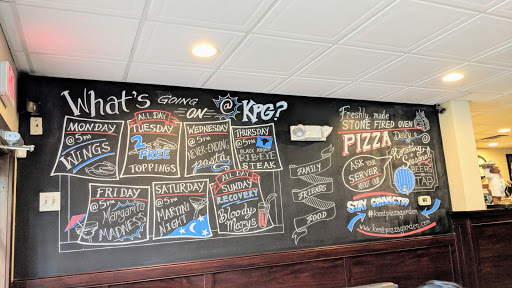 What's GOING ON @ KPG?
MONDAY
@ 5pm
WINGS
ALL DAY
TUESDAY
2 FREE
TOPPINGS
WEDNESDAY
@ 5pm
NEVER-ENDING
pasta
THURSDAY
@ 5pm
BLACK ANGUS
RIBEYE
STEAK
FRIDAY
@ 5pm
Margarita
MADNESS
SATURDAY
@ 5pm
MARTINI
NIGHT
ALL DAY
SUNDAY
RECOVERY
Bloody
Marys
FAMILY
FRIENDS
FOOD
Freshly made
STONE FIRED OVEN
PIZZA
Daily
ASK YOUR
SERVER
ABOUT OUR
Rotating
Seasonal
BEERS
TAP
STAY CONNECTED
#kentpizzagarden
www.kentpizzagarden.com